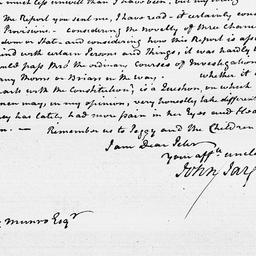 much less
than I have been, but my
The Report you sent me, I have read – it certainly con
Provisions. – considering the novelty of Mrs Chan
dom or that – and considering how this Report is
ted with certain Persons and Things, it was hardly
ould pass thro' the ordinary courses of Investigation
any Thorns or Briars in the way. whether it
arts with the Constitution, is a Question, on which
men may, in my opinion, very honestly take different
ey has late, had more pain in her Eyes and head
n. — Remember us to Peggy and the Children
I am Dear Peter
Your affte uncle
John Jay
Munro Esqr